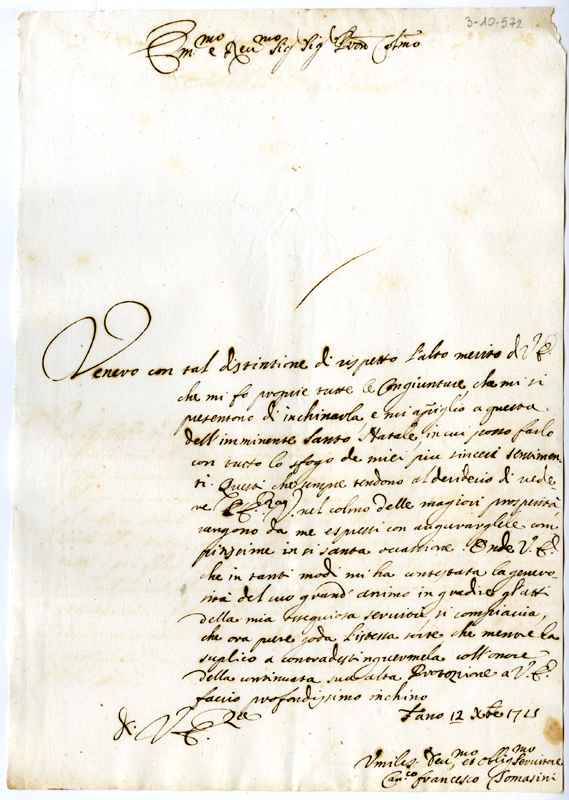 3-10-572
Em.mo e Reu.mo Sig. Sig. Pron Col.mo
Venero con tal distintione di rispetto l'alto merito di V. E.
che mi fo proprie tutte le Congiunture, che mi si
presentono di inchinarla e mi apiglio a questa
dell'imminente Santo Natale, in cui posso farlo
con tutto lo sfogo de miei piu sinceri sentimen-
ti. Questi che sempre tendono al desiderio di vede
re nel colmo delle magiori prosperità
vengono da me espressi con augurarglele com
pitissime in si santa occasione. Onde V. E.
che in tanti modi mi ha contestata la genero-
sità del suo grand'animo in gradir gl'atti
della mia ossequiosa servitù, si compiacia,
che ora pure goda l'istessa sorte che mentre la
suplico a contradestinguermela coll'onore
della continuata sua alta Protezione a V. E.
facio profondissimo inchino
Di V. E. Fano 12 Xbre 1715
Vmiliss. Deu.mo et oblig.mo Seruitore
Can.co Francesco Tomasini